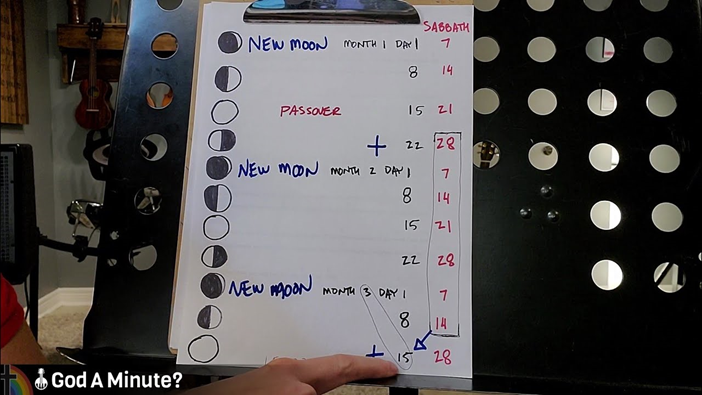 SABBATH
NEW MOON MONTH 1 DAY 1 7
8 14
PASSOVER 15 21
+ 22 28
NEW MOON MONTH 2 DAY 1 7
8 14
15 21
22 28
NEW MOON MONTH 3 DAY 1 7
8 14
+ 15 28
God A Minute?